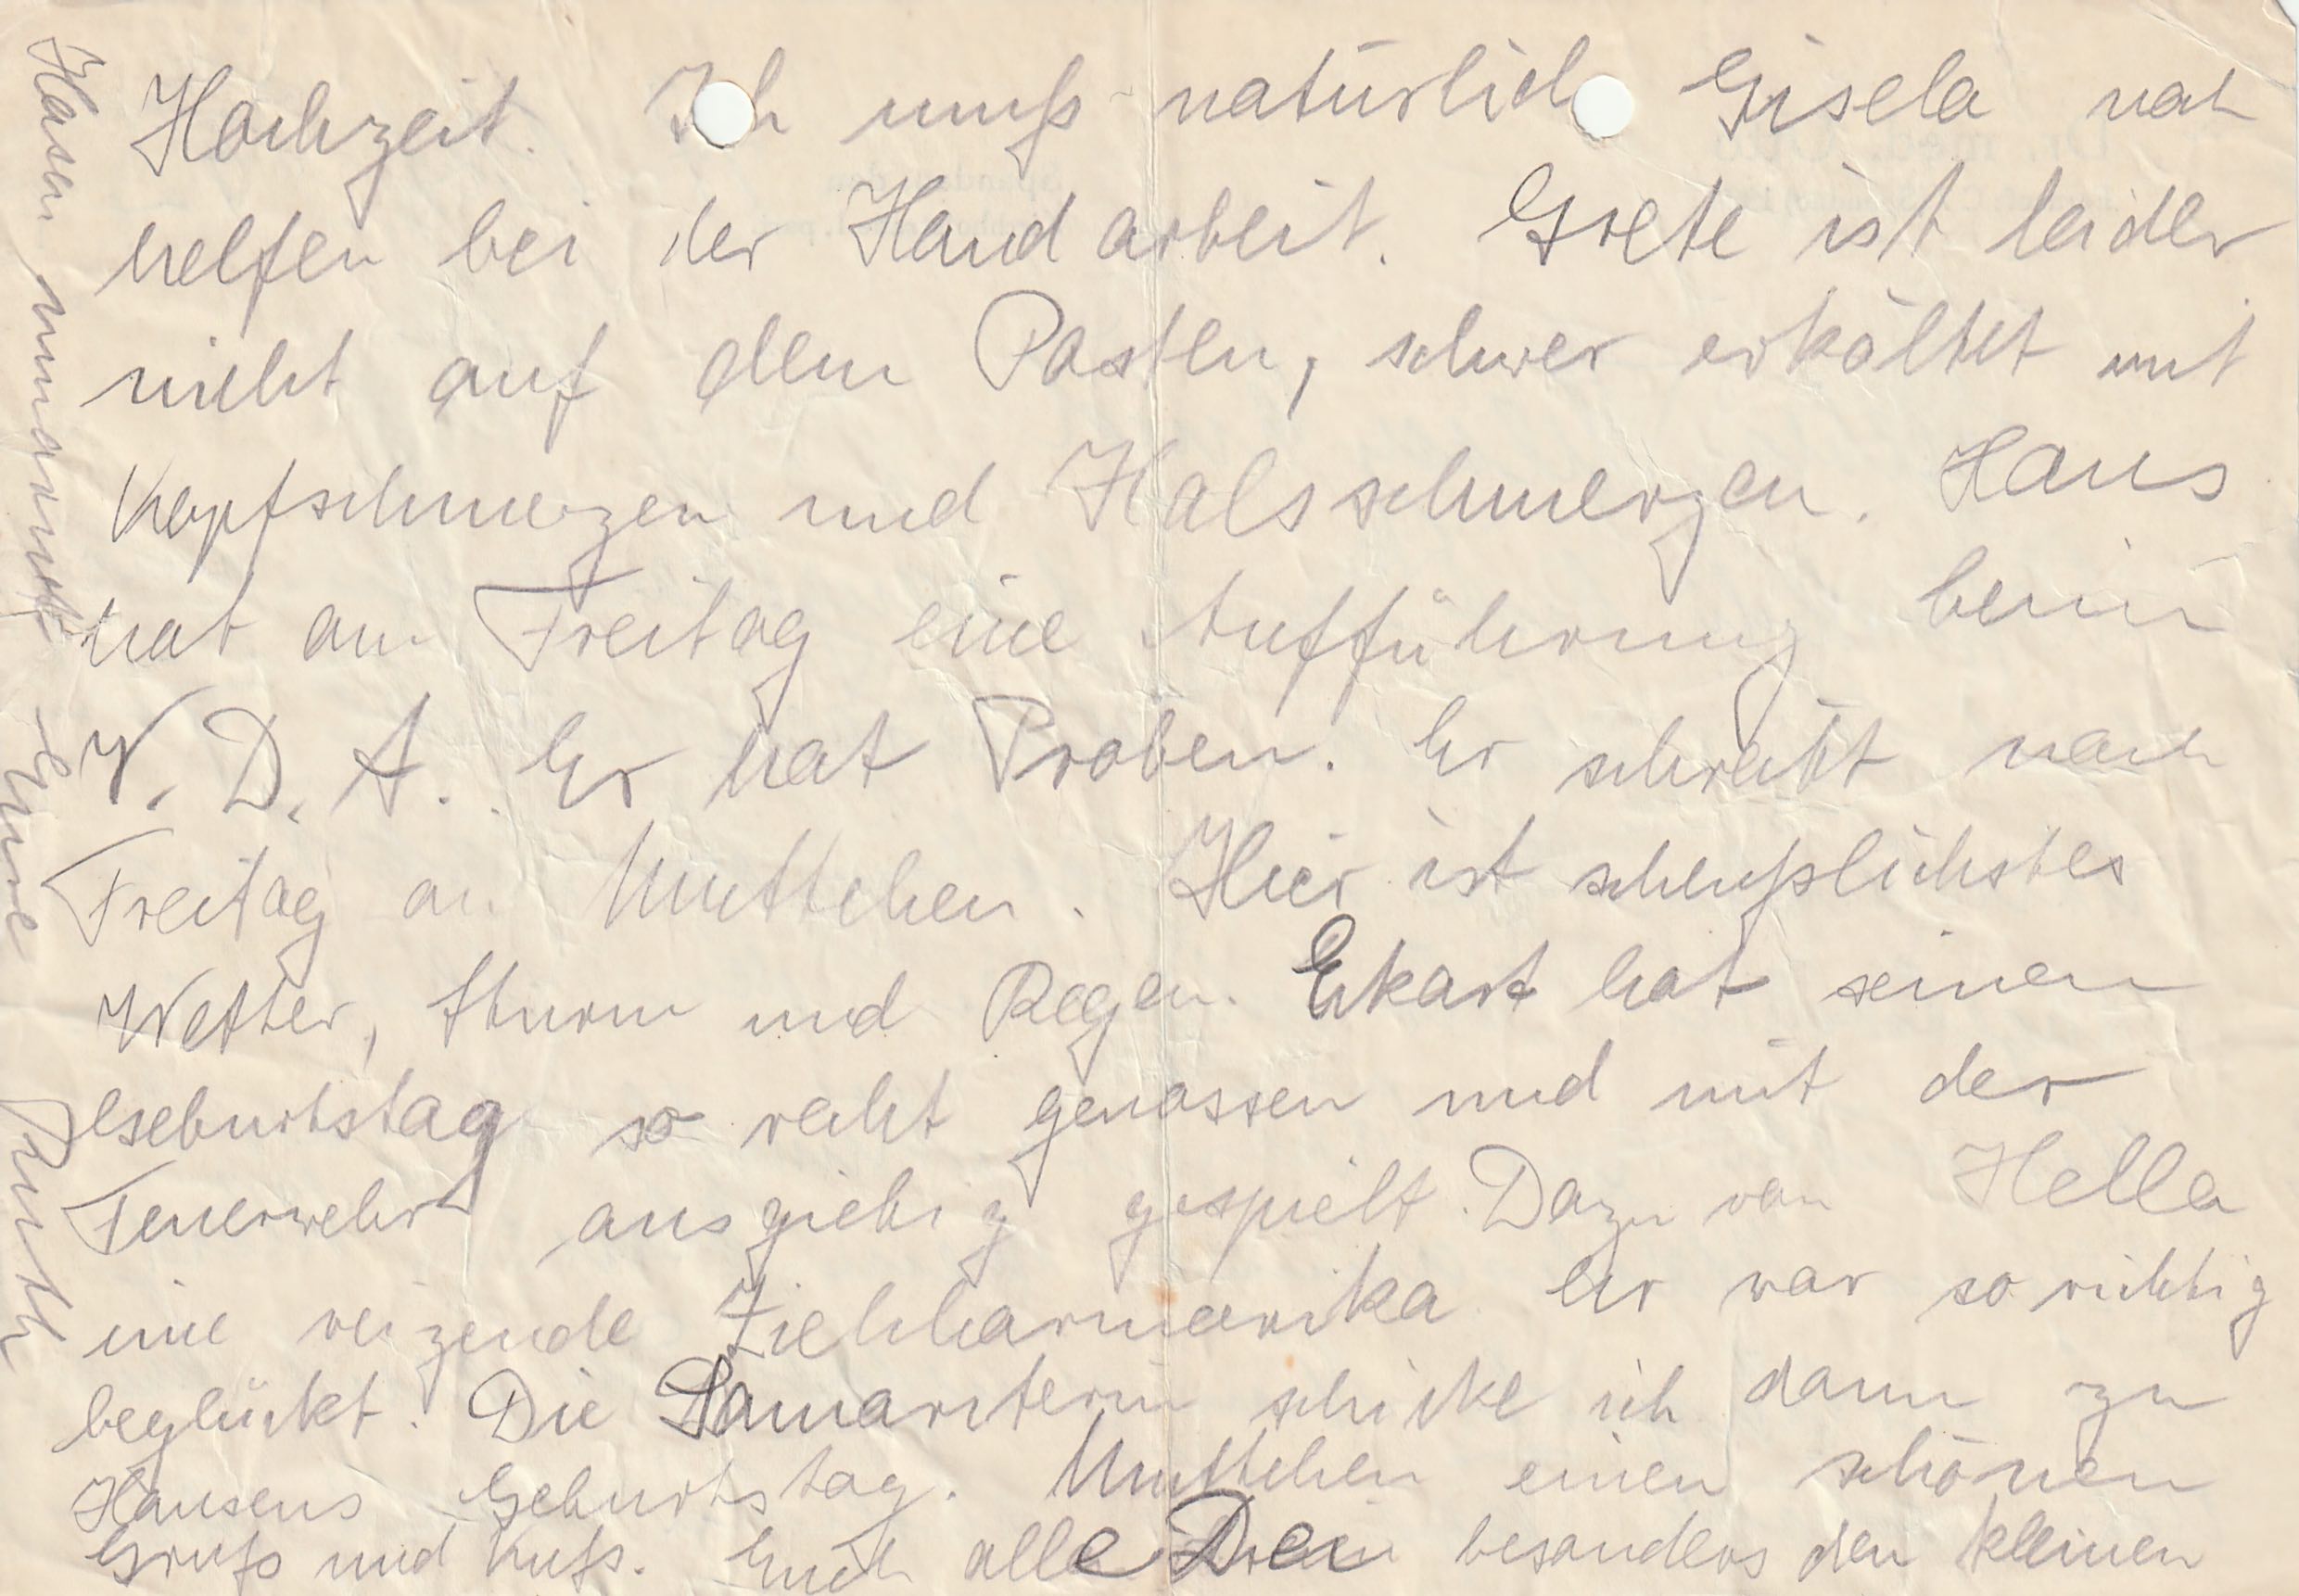 Hochzeit. Ich muß natürlich Gisela noch
helfen bei der Handarbeit. Grete ist leider
nicht auf dem Posten, schwer erkältet mit
Kopfschmerzen und Halsschmerzen. Hans
hat am Freitag eine Aufführung beim
V. D. A. Er hat Proben. Er schreibt nach
Freitag an Muttchen. Hier ist scheußlichstes
Wetter, Sturm und Regen. Ekart hat seinen
Geburtstag so recht genossen und mit der
Feuerwehr ausgiebig gespielt. Dazu von Hella
eine reizende Ziehharmonika. Er war so richtig
beglückt. Die Samariterin schicke ich dann zu
Hansens Geburtstag. Muttchen einen schönen
Gruß und Kuß. Euch alle Drei besonders den kleinen
Hasen umarmt Eure Ruth